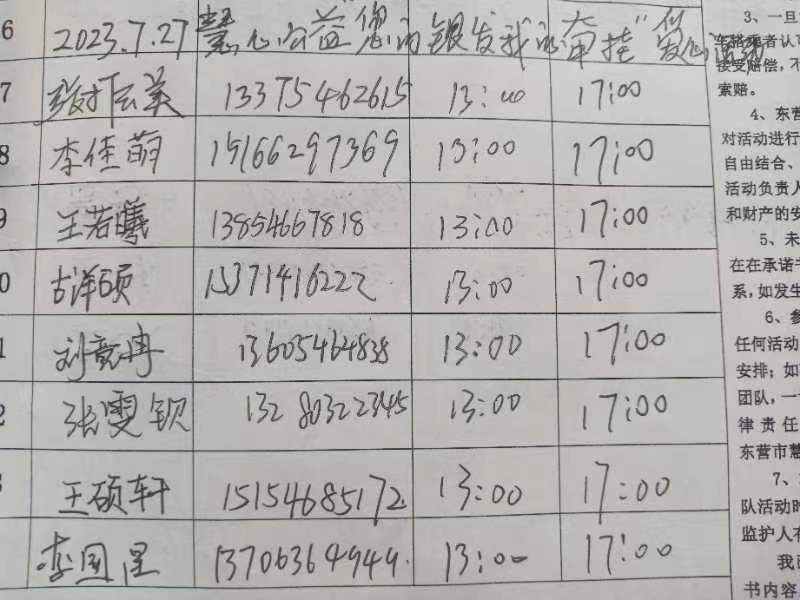 6 2023.7.27 慧心公益"您的银发我的奋挂"爱心活动
7 张打云美 13375462615 13:00 17:00
8 李佳萌 15166297369 13:00 17:00
9 王若曦 13854667818 13:00 17:00
0 古洋硕 15371416222 13:00 17:00
1 刘竞冉 13605464838 13:00 17:00
2 张雯钦 13280322345 13:00 17:00
3 王硕轩 15154685172 13:00 17:00
李国星 13706364949. 13:00 17:00
3、一旦
车搭乘者认可
接受赔偿,不
索赔。
4、东营
对活动进行
自由结合、
活动负责人
和财产的安
5、未
在在承诺书
系,如发生
6、参
任何活动
安排;如
团队,一
律责任
东营市慧
7、
队活动时
监护人有
我已
书内容